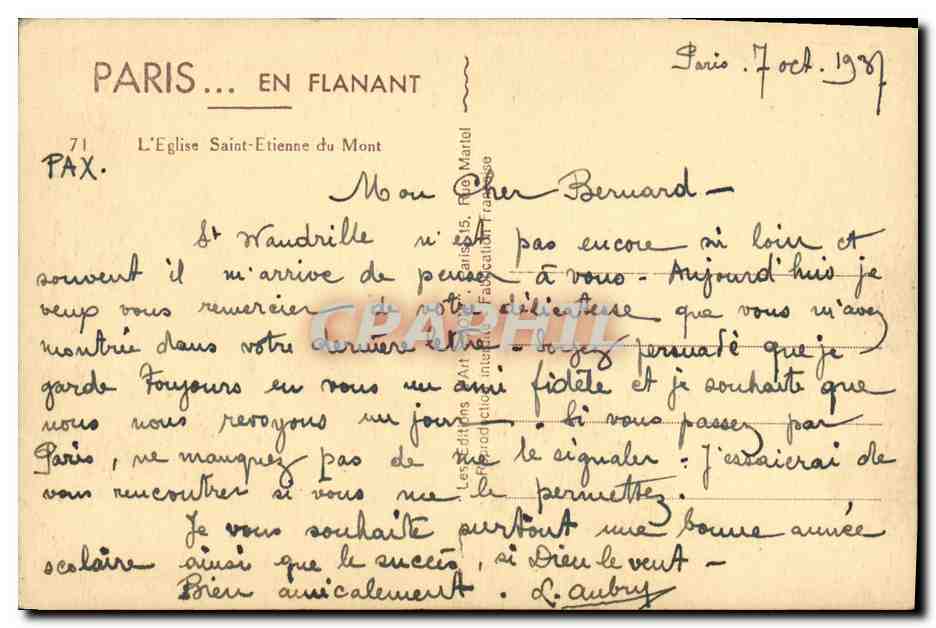 Paris . 7 oct. 1937
PARIS... EN FLANANT
71 L'Eglise Saint-Etienne du Mont
PAX.
Mon Cher Bernard -
St Wandrille n'est pas encore si loin et
souvent il m'arrive de penser à vous - Aujourd'hui je
veux vous remercier de votre délicatesse que vous m'avez
montrée dans votre dernière lettre - Soyez persuadé que je
garde toujours en vous un ami fidèle et je souhaite que
nous nous revoyons un jour - Si vous passez par
Paris, ne manquez pas de me le signaler - J'essaierai de
vous rencontrer si vous me le permettez.
Je vous souhaite surtout une bonne année
scolaire ainsi que le succès, si Dieu le veut -
Bien amicalement . L. Aubry
Les Editions d'Art Paris 15, Rue Martel
Reproduction interdite Fabrication Française
CPAPHIL